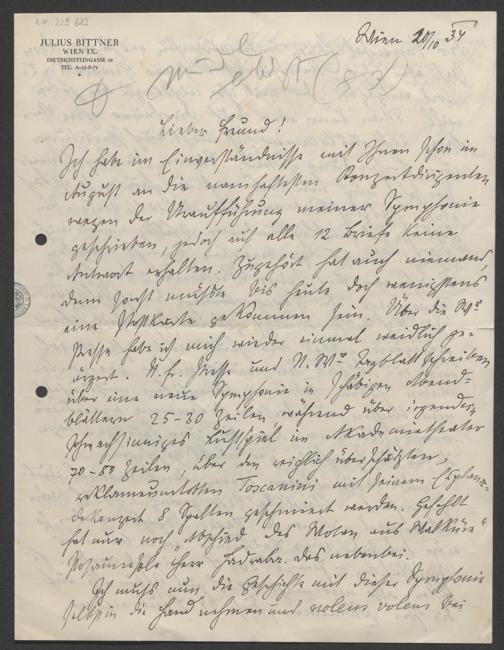 I.N. 229 823
JULIUS BITTNER
WIEN IX.
DIETRICHSTEINGASSE 10
TEL. A-15-8-71
Wien 20/10 34
Lieber Freund!
Ich habe im Einverständnisse mit Ihnen schon im
August an die namhaftesten Konzertdirigenten
wegen der Uraufführung meiner Symphonie
geschrieben, jedoch auf alle 12 Briefe keine
Antwort erhalten. Zugehört hat auch niemand,
denn sonst müsste bis heute doch wenigstens
eine Postkarte gekommen sein. Über die Wr
Presse habe ich mich wieder einmal weidlich ge-
ärgert. N. fr. Presse und N. Wr. Tagblatt schreiben
über eine neue Symphonie in schäbigen Abend-
blättern 25-30 Zeilen, während über irgendein
schwachsinniges Lustspiel im Akademietheater
70-80 Zeilen, über den reichlich überschätzten,
reklameumtobten Toscanini mit seinem
konzert 8 Spalten geschmiert werden. Gefehlt
hat nur noch „Abschied des Wotan aus Walküre"
Herr das nebenbei.
Ich muß nun die Geschichte mit dieser Symphonie
selbst in die Hand nehmen und nolens volens bei